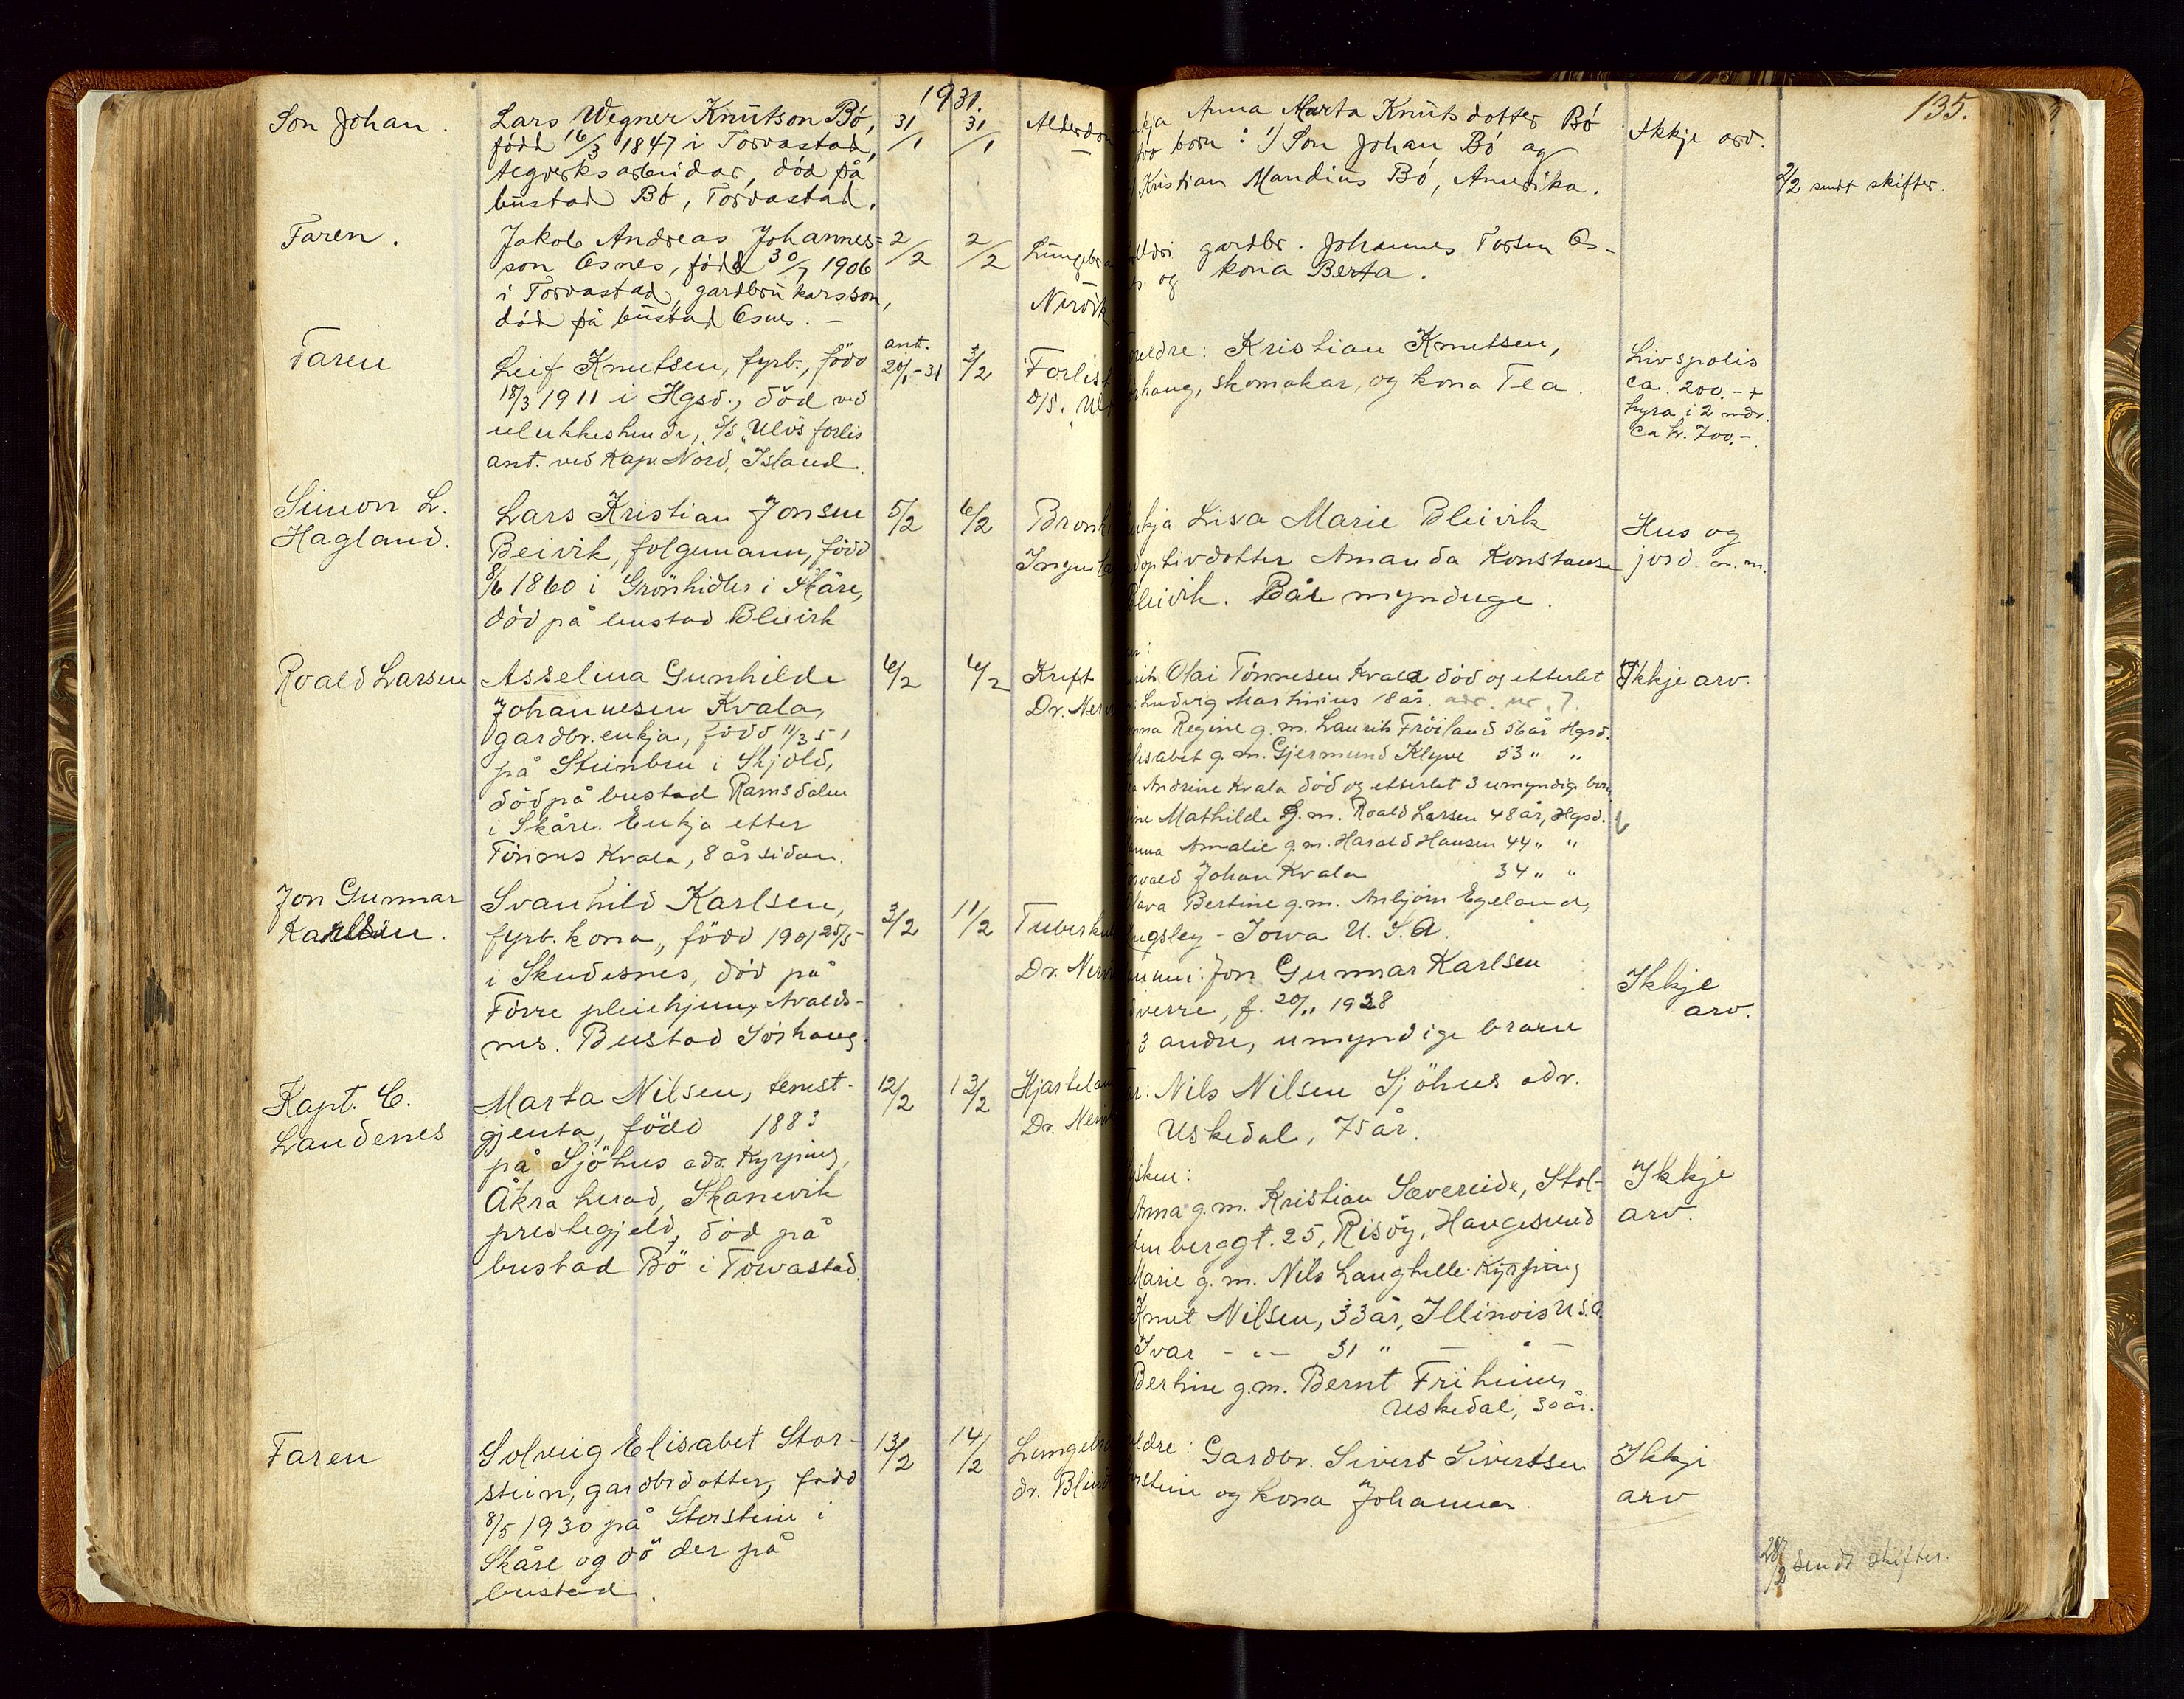 1931.
135.
Son Johan.
Lars Wegner Knutson Bö,
född 16/3 1847 i Torvastad,
tegverksarbeidar, död på
bustad Bö, Torvastad.
31/1
31/1
Alderdom
Anna Marta Knutsdotter Bö
born: 1) Son Johan Bö og
Kristian Mandius Bö, Amerika.
Ikkje arv.
2/2 sendt skifter.
Faren.
Jakob Andreas Johannes=
son Osnes, född 30/7 1906
i Torvastad, gardbrukarsson,
död på bustad Osnes. -
2/2
2/2
Lungebr
Nervik
gardbr. Johannes Torsen Os-
og kona Berta.
Faren
Leif Knutsen, fyrb., född
18/3 1911 i Hgsd., död ved
ulukkeshende, D/S "Ulv"s forlis
ant. ved Kap Nord, Island.
ant.
20/1-31
3/2
Forlist
D/S. "Ul
eldre: Kristian Knutsen,
haug, skomakar, og kona Tea.
Livspolis
ca. 200.- +
hyra i 2 mdr.
ca kr. 700,-
Simon L.
Hagland.
Lars Kristian Jonsen
Beivik, folgemann, född
8/6 1860 i Grönhidler i Skåre,
död på bustad Bleivik
5/2
6/2
Bronk
Ingen
kja Lisa Marie Bleivik
optivdotter Amanda Konstanse
Bleivik. Båe mynduge.
Hus og
jord m. m.
Roald Larsen
Asselina Gunhilde
Johannesen Kvala,
gardbr. enkja, född 11/3 51
på Steinbru i Skjold,
död på bustad Ramsdalen
i Skåre. Enkja etter
Tönnes Kvala, 8 år sidan.
6/2
6/2
Kreft
Dr. Ner
Olai Tönnesen Kvala död og etterlet
Ludvig Martinius 18 år. adr. nr. 7.
nna Regine g.m. Laurits Fröiland 56 år Hgsd.
lisabet g.m. Gjermund Klyve 53 " "
Andrine Kvala död og etterlet 3 umyndige born
ine Mathilde g.m. Roald Larsen 48 år, Hgsd.
anna Amalie g.m. Harald Hansen 44 " "
vald Johan Kvala 34 " "
lava Bertine g.m. Anbjörn Egeland,
ugsley - Iowa U.S.A.
Ikkje arv.
Jon Gunnar
Karlsen.
Svanhild Karlsen,
fyrb. kona, född 1901 25/5
i Skudesnes, död på
Förre pleiehjem, Avalds-
nes. Bustad Sörhaug.
3/2
11/2
Tuberkul
Dr. Nerv
Jon Gunnar Karlsen
verre, f. 20/11 1928
3 andre, umyndige bröre
Ikkje
arv.
Kapt. C.
Landenes
Marta Nilsen, tenest-
gjenta, född 1883
på Sjöhus adr. Kyrping,
Åkra herad, Skånevik
prestegjeld, död på
bustad Bö i Torvastad.
12/2
13/2
Hjartelam
Dr. Nerv
ar: Nils Nilsen Sjöhus adr.
Uskedal, 75 år.
sken:
Anna g.m. Kristian Sævereide, Stol-
tenberggt. 25, Risöy, Haugesund
Marie g.m. Nils Langhelle Kyrping
Knut Nilsen, 33 år, Illinois U.S.A.
Ivar - " - 31 " - " -
Bertine g.m. Bernt Friheim,
Uskedal, 30 år.
Ikkje
arv.
Faren
Solveig Elisabet Stor-
stein, gardbrdotter, född
8/5 1930 på Storstein i
Skåre og dö der på
bustad.
13/2
14/2
Lungebr
dr. Blind
eldre: Gardbr. Sivert Sivertsen
orstein og kona Johanna.
Ikkje
arv
28/2 sendt skifter.